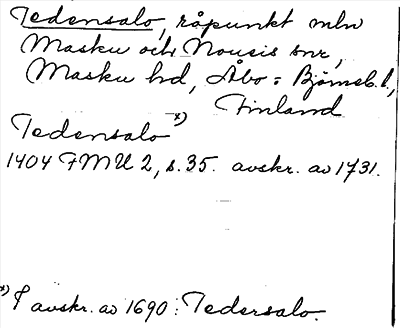 Tedensalo, råpunkt mln
Masku och Nousis snr,
Masku hd, Åbo o. Björneb. l.,
Finland
Tedensalo x)
1404 FMU 2, s. 35. avskr. av 1731.
x) I avskr. av 1690: Tedersalo.